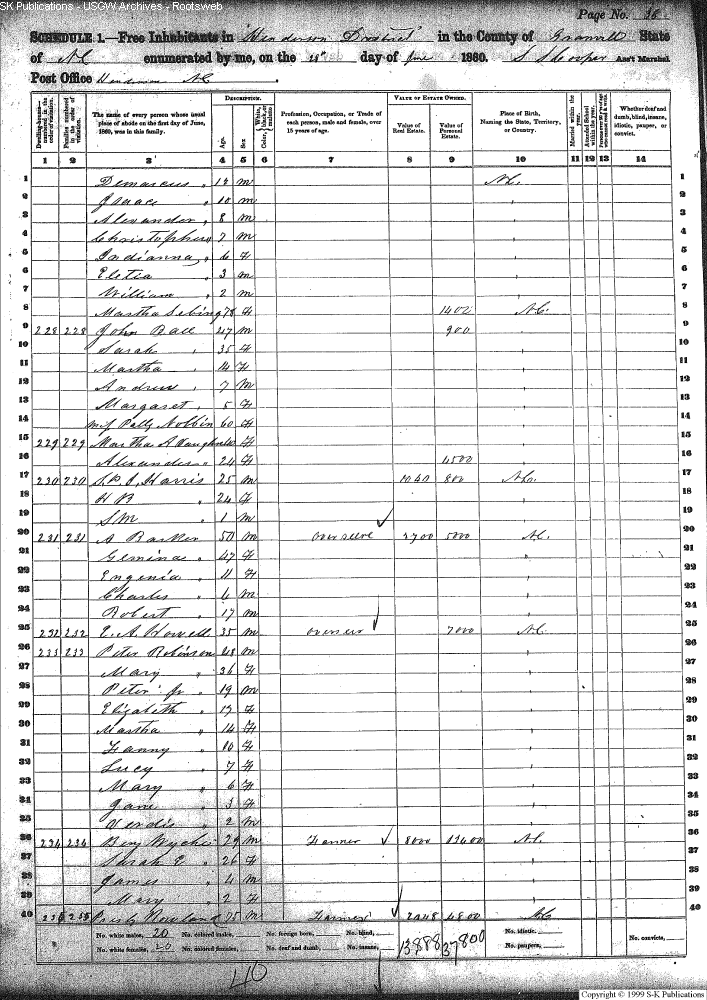 SK Publications - USGW Archives - Rootsweb
Page No. 36
SCHEDULE 1.—Free Inhabitants in "Henderson District" in the County of Granvill State
of NC enumerated by me, on the 28th day of June 1860. Ass't Marshal.
Post Office Henderson NC
Dwelling-houses—numbered in the order of visitation.
Families numbered in the order of visitation.
The name of every person whose usual place of abode on the first day of June, 1860, was in this family.
DESCRIPTION.
Age.
Sex
Color, White, black, or mulatto
Profession, Occupation, or Trade of each person, male and female, over 15 years of age.
VALUE OF ESTATE OWNED.
Value of Real Estate.
Value of Personal Estate.
Place of Birth, Naming the State, Territory, or Country.
Married within the year.
Attended School within the year.
Whether deaf and dumb, blind, insane, idiotic, pauper, or convict.
1 2 3 4 5 6 7 8 9 10 11 12 13 14
1 Demarcus " 12 m NC. 1
2 Isaac " 10 m 2
3 Alexander " 8 m 3
4 Christopher 7 m 4
5 Indianna " 6 f 5
6 " 3 m 6
7 William " 2 m 7
8 Martha 78 f 1400 NC. 8
9 228 228 John Ball 47 m 900 9
10 Sarah " 35 f 10
11 Martha 14 f 11
12 Andrew " 7 m 12
13 Margaret " 5 f 13
14 60 f 14
15 229 229 Martha A f 15
16 Alexander " 24 f 4500 16
17 230 230 Harris 25 m 1040 800 NC. 17
18 H B " 24 f 18
19 S M " 1 m 19
20 231 231 A Barker 50 m overseer 2700 5000 NC. 20
21 Gemina " 47 f 21
22 Eugenia " 11 f 22
23 Charles " 4 m 23
24 Robert " 17 m 24
25 232 232 E. A. Howell 35 m overseer 7000 NC 25
26 233 233 Peter Robinson 48 m 26
27 Mary " 36 f 27
28 Peter Jr " 19 m 28
29 Elizabeth " 17 f 29
30 Martha " 14 f 30
31 Fanny " 10 f 31
32 Lucy " 7 f 32
33 Mary " 6 f 33
34 Jane " 3 f 34
35 " 2 m 35
36 234 234 Benj Wyche 29 m Farmer 8000 13400 NC. 36
37 Sarah E " 26 f 37
38 James " 4 m 38
39 Mary " 2 f 39
40 235 235 Rowland 75 m Farmer 2048 4800 NC 40
No. white males, 20 No. colored males, No. foreign born, No. blind, No. idiotic, No. convicts,
No. white females, 20 No. colored females, No. deaf and dumb, No. insane, No. paupers,
13888 37800
40
Copyright © 1999 S-K Publications